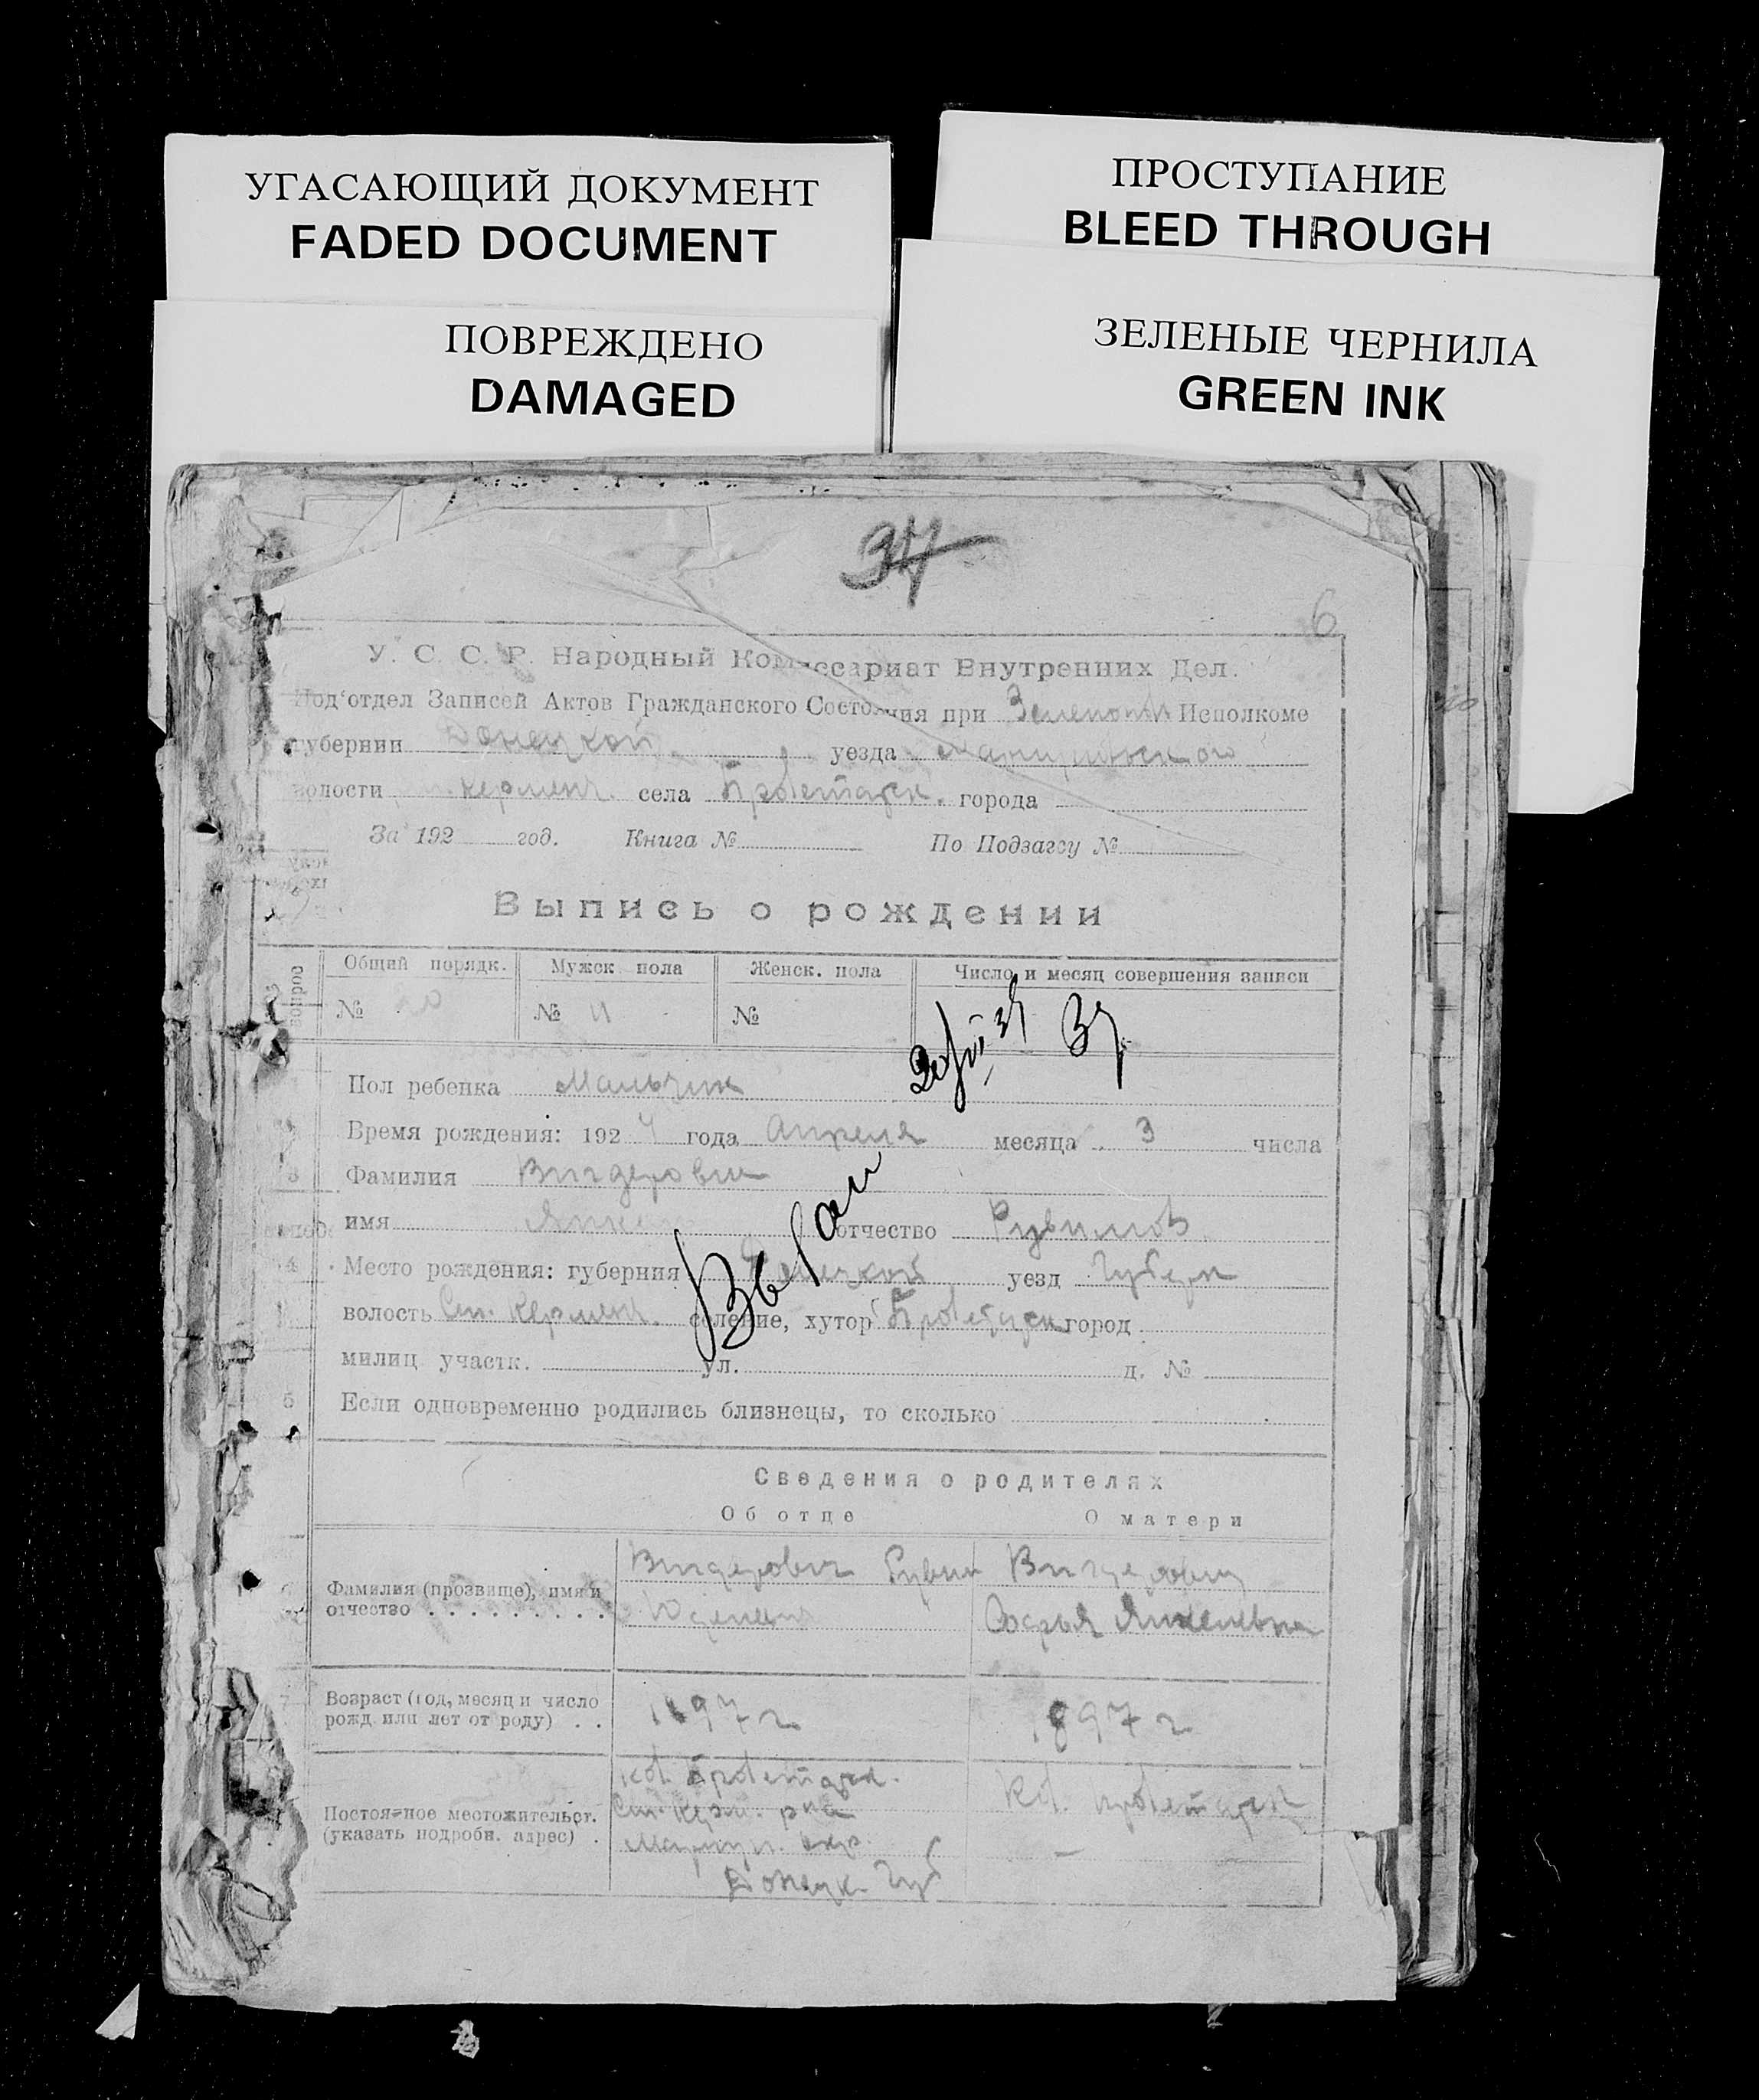 УГАСАЮЩИЙ ДОКУМЕНТ
FADED DOCUMENT
ПРОСТУПАНИЕ
BLEED THROUGH
ПОВРЕЖДЕНО
DAMAGED
ЗЕЛЕНЫЕ ЧЕРНИЛА
GREEN INK
37
6
У. С. С. Р. Народный Комиссариат Внутренних Дел.
Под'отдел Записей Актов Гражданского Состояния при Исполкоме
губернии Донецкой уезда
волости села Пролетарск. города
За 192 год. Книга № По Подзагсу №
Выпись о рождении
Общий порядк. Мужск пола Женск. пола Число и месяц совершения записи
№ 20 № 11 №
Пол ребенка Мальчик
Время рождения: 1924 года Апреля месяца 3 числа
Фамилия Вигдерович
имя отчество Рувимов
Место рождения: губерния Донецкой уезд
волость Ст. Кермен. селение, хутор Пролетарск город
милиц участк. ул. д. №
5 Если одновременно родились близнецы, то сколько
Сведения о родителях
Об отце О матери
Фамилия (прозвище), имя и отчество Вигдерович Рувим Вигдерович
Янкелевна
Возраст (год, месяц и число рожд или лет от роду) 1897 г 1897 г
Постоянное местожительст. (указать подробн. адрес)
кол. Пролетарск. Кол. Пролетарск
Ст. Керм. р-на
Мариуп. окр.
Донецк. Губ